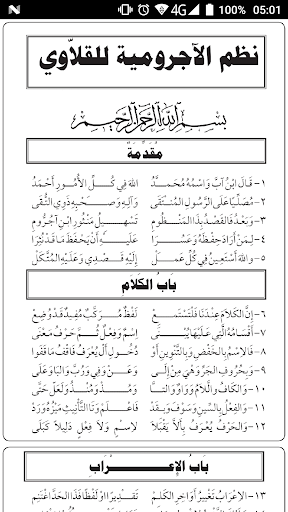 100% 05:01
4G
نظم الآجرومية للقلاّوي
بِسْمِ اللهِ الرَّحْمٰنِ الرَّحِيمِ
مُقَدِّمَةٌ
١- قَالَ ابْنُ آبَّ وَاسْمُهُ مُحَمَّدُ اللهَ فِي كُلِّ الأُمُورِ أَحْمَدُ
٢- مُصَلِّيًا عَلَى الرَّسُولِ الْمُنْتَقَى وَآلِهِ وَصَحْبِهِ ذَوِي التُّقَى
٣- وَبَعْدُ فَالْقَصْدُ بِذَا الْمَنْظُومِ تَسْهِيلُ مَنْثُورِ ابْنِ آجُرُّومِ
٤- لِمَنْ أَرَادَ حِفْظَهُ وَعَسُرَا عَلَيْهِ أَنْ يَحْفَظَ مَا قَدْ نُثِرَا
٥- وَاللهَ أَسْتَعِينُ فِي كُلِّ عَمَلْ إِلَيْهِ قَصْدِي وَعَلَيْهِ الْمُتَّكَلْ
بَابُ الكَلَامِ
٦- إِنَّ الْكَلَامَ عِنْدَنَا فَلْتَسْتَمِعْ لَفْظٌ مُرَكَّبٌ مُفِيدٌ قَدْ وُضِعْ
٧- أَقْسَامُهُ الَّتِي عَلَيْهَا يُبْنَى اِسْمٌ وَفِعْلٌ ثُمَّ حَرْفُ مَعْنَى
٨- فَالِاسْمُ بِالْخَفْضِ وَبِالتَّنْوِينِ أَوْ دُخُولِ أَلْ يُعْرَفُ فَاقْفُ مَا قَفَوْا
٩- وَبِحُرُوفِ الْجَرِّ وَهْيَ مِنْ إِلَى وَعَنْ وَفِي وَرُبَّ وَالْبَا وَعَلَى
١٠- وَالْكَافُ وَاللَّامُ وَوَاوٌ وَالتَّا وَمُذْ وَمُنْذُ وَلَعَلَّ حَتَّى
١١- وَالْفِعْلُ بِالسِّينِ وَسَوْفَ وَبِقَدْ فَاعْلَمْ وَتَا التَّأْنِيثِ مَيْزُهُ وَرَدْ
١٢- وَالْحَرْفُ يُعْرَفُ بِأَلَّا يَقْبَلَا لِاسْمٍ وَلَا فِعْلٍ دَلِيلًا كَبَلَى
بَابُ الإِعْرَابِ
١٣- الِاعْرَابُ تَغْيِيرُ أَوَاخِرِ الْكَلِمْ تَقْدِيرًا أَوْ لَفْظًا فَذَا الْحَدَّ اغْتَنِمْ